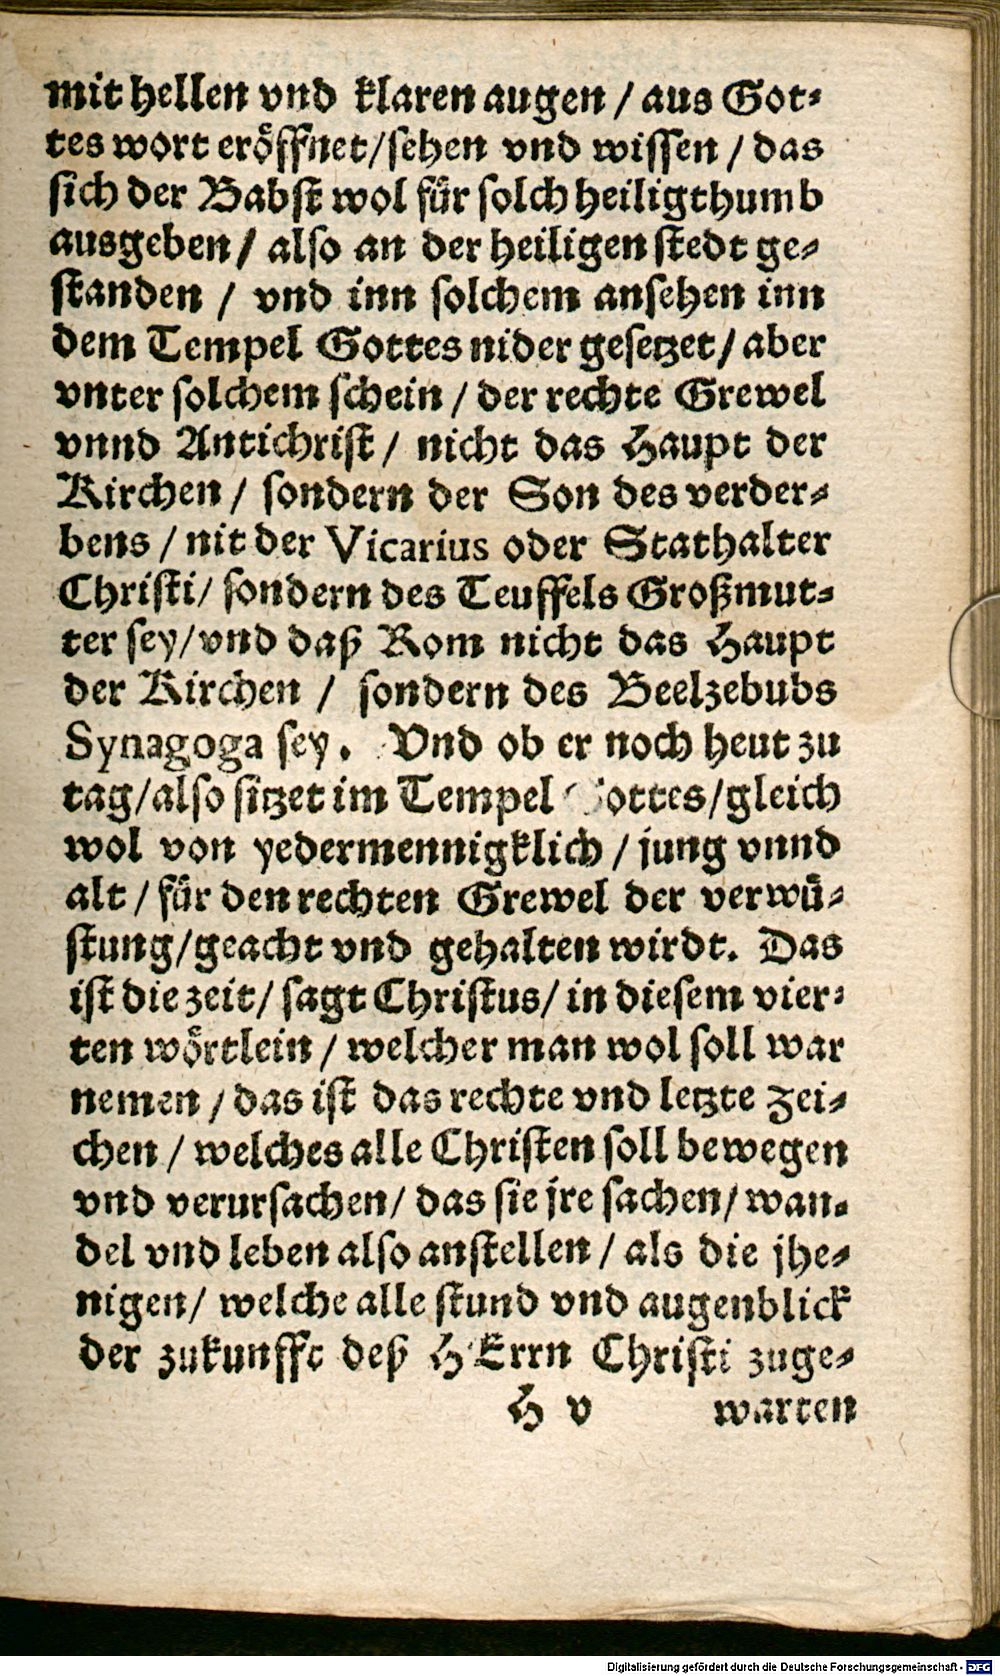 mit hellen vnd klaren augen / aus Got⸗
tes wort eröffnet/sehen vnd wissen / das
sich der Babst wol für solch heiligthumb
ausgeben / also an der heiligen stedt ge⸗
standen / vnd inn solchem ansehen inn
dem Tempel Gottes nider gesetzet / aber
vnter solchem schein / der rechte Grewel
vnnd Antichrist / nicht das Haupt der
Kirchen / sondern der Son des verder⸗
bens / nit der Vicarius oder Stathalter
Christi/ sondern des Teuffels Großmut⸗
ter sey/vnd daß Rom nicht das Haupt
der Kirchen / sondern des Beelzebubs
Synagoga sey. Vnd ob er noch heut zu
tag/also sitzet im Tempel Gottes/gleich
wol von yedermennigklich / jung vnnd
alt / für den rechten Grewel der verwü⸗
stung/geacht vnd gehalten wirdt. Das
ist die zeit/ sagt Christus/ in diesem vier⸗
ten wörtlein / welcher man wol soll war
nemen / das ist das rechte vnd letzte zei⸗
chen / welches alle Christen soll bewegen
vnd verursachen/ das sie jre sachen/ wan⸗
del vnd leben also anstellen / als die jhe⸗
nigen/ welche alle stund vnd augenblick
der zukunfft deß HErrn Christi zuge⸗
H v warten
Digitalisierung gefördert durch die Deutsche Forschungsgemeinschaft - DFG